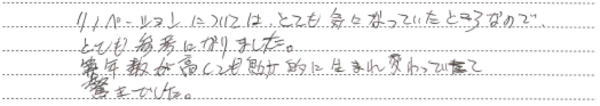 リノベーションについては、とても気になっていたところなので、
とても参考になりました。
年数が高くても劇的に生まれ変わっていて
驚きでした。